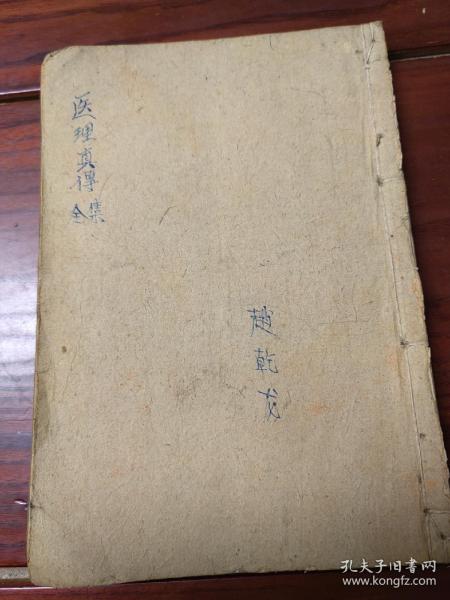 医理真得
全集
赵乾龙
孔夫子旧书网
www.kongfz.com